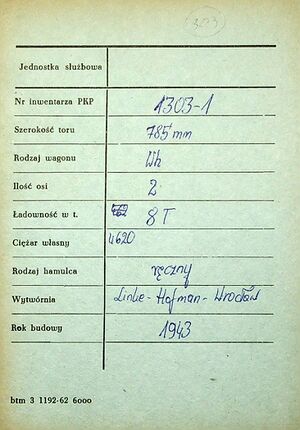 (303)
Jednostka służbowa
Nr inwentarza PKP 1303-1
Szerokość toru 785 mm
Rodzaj wagonu Wh
Ilość osi 2
Ładowność w t. 8 T
Ciężar własny 4620
Rodzaj hamulca ręczny
Wytwórnia Linke-Hofman-Wrocław
Rok budowy 1943
btm 3 1192-62 6000